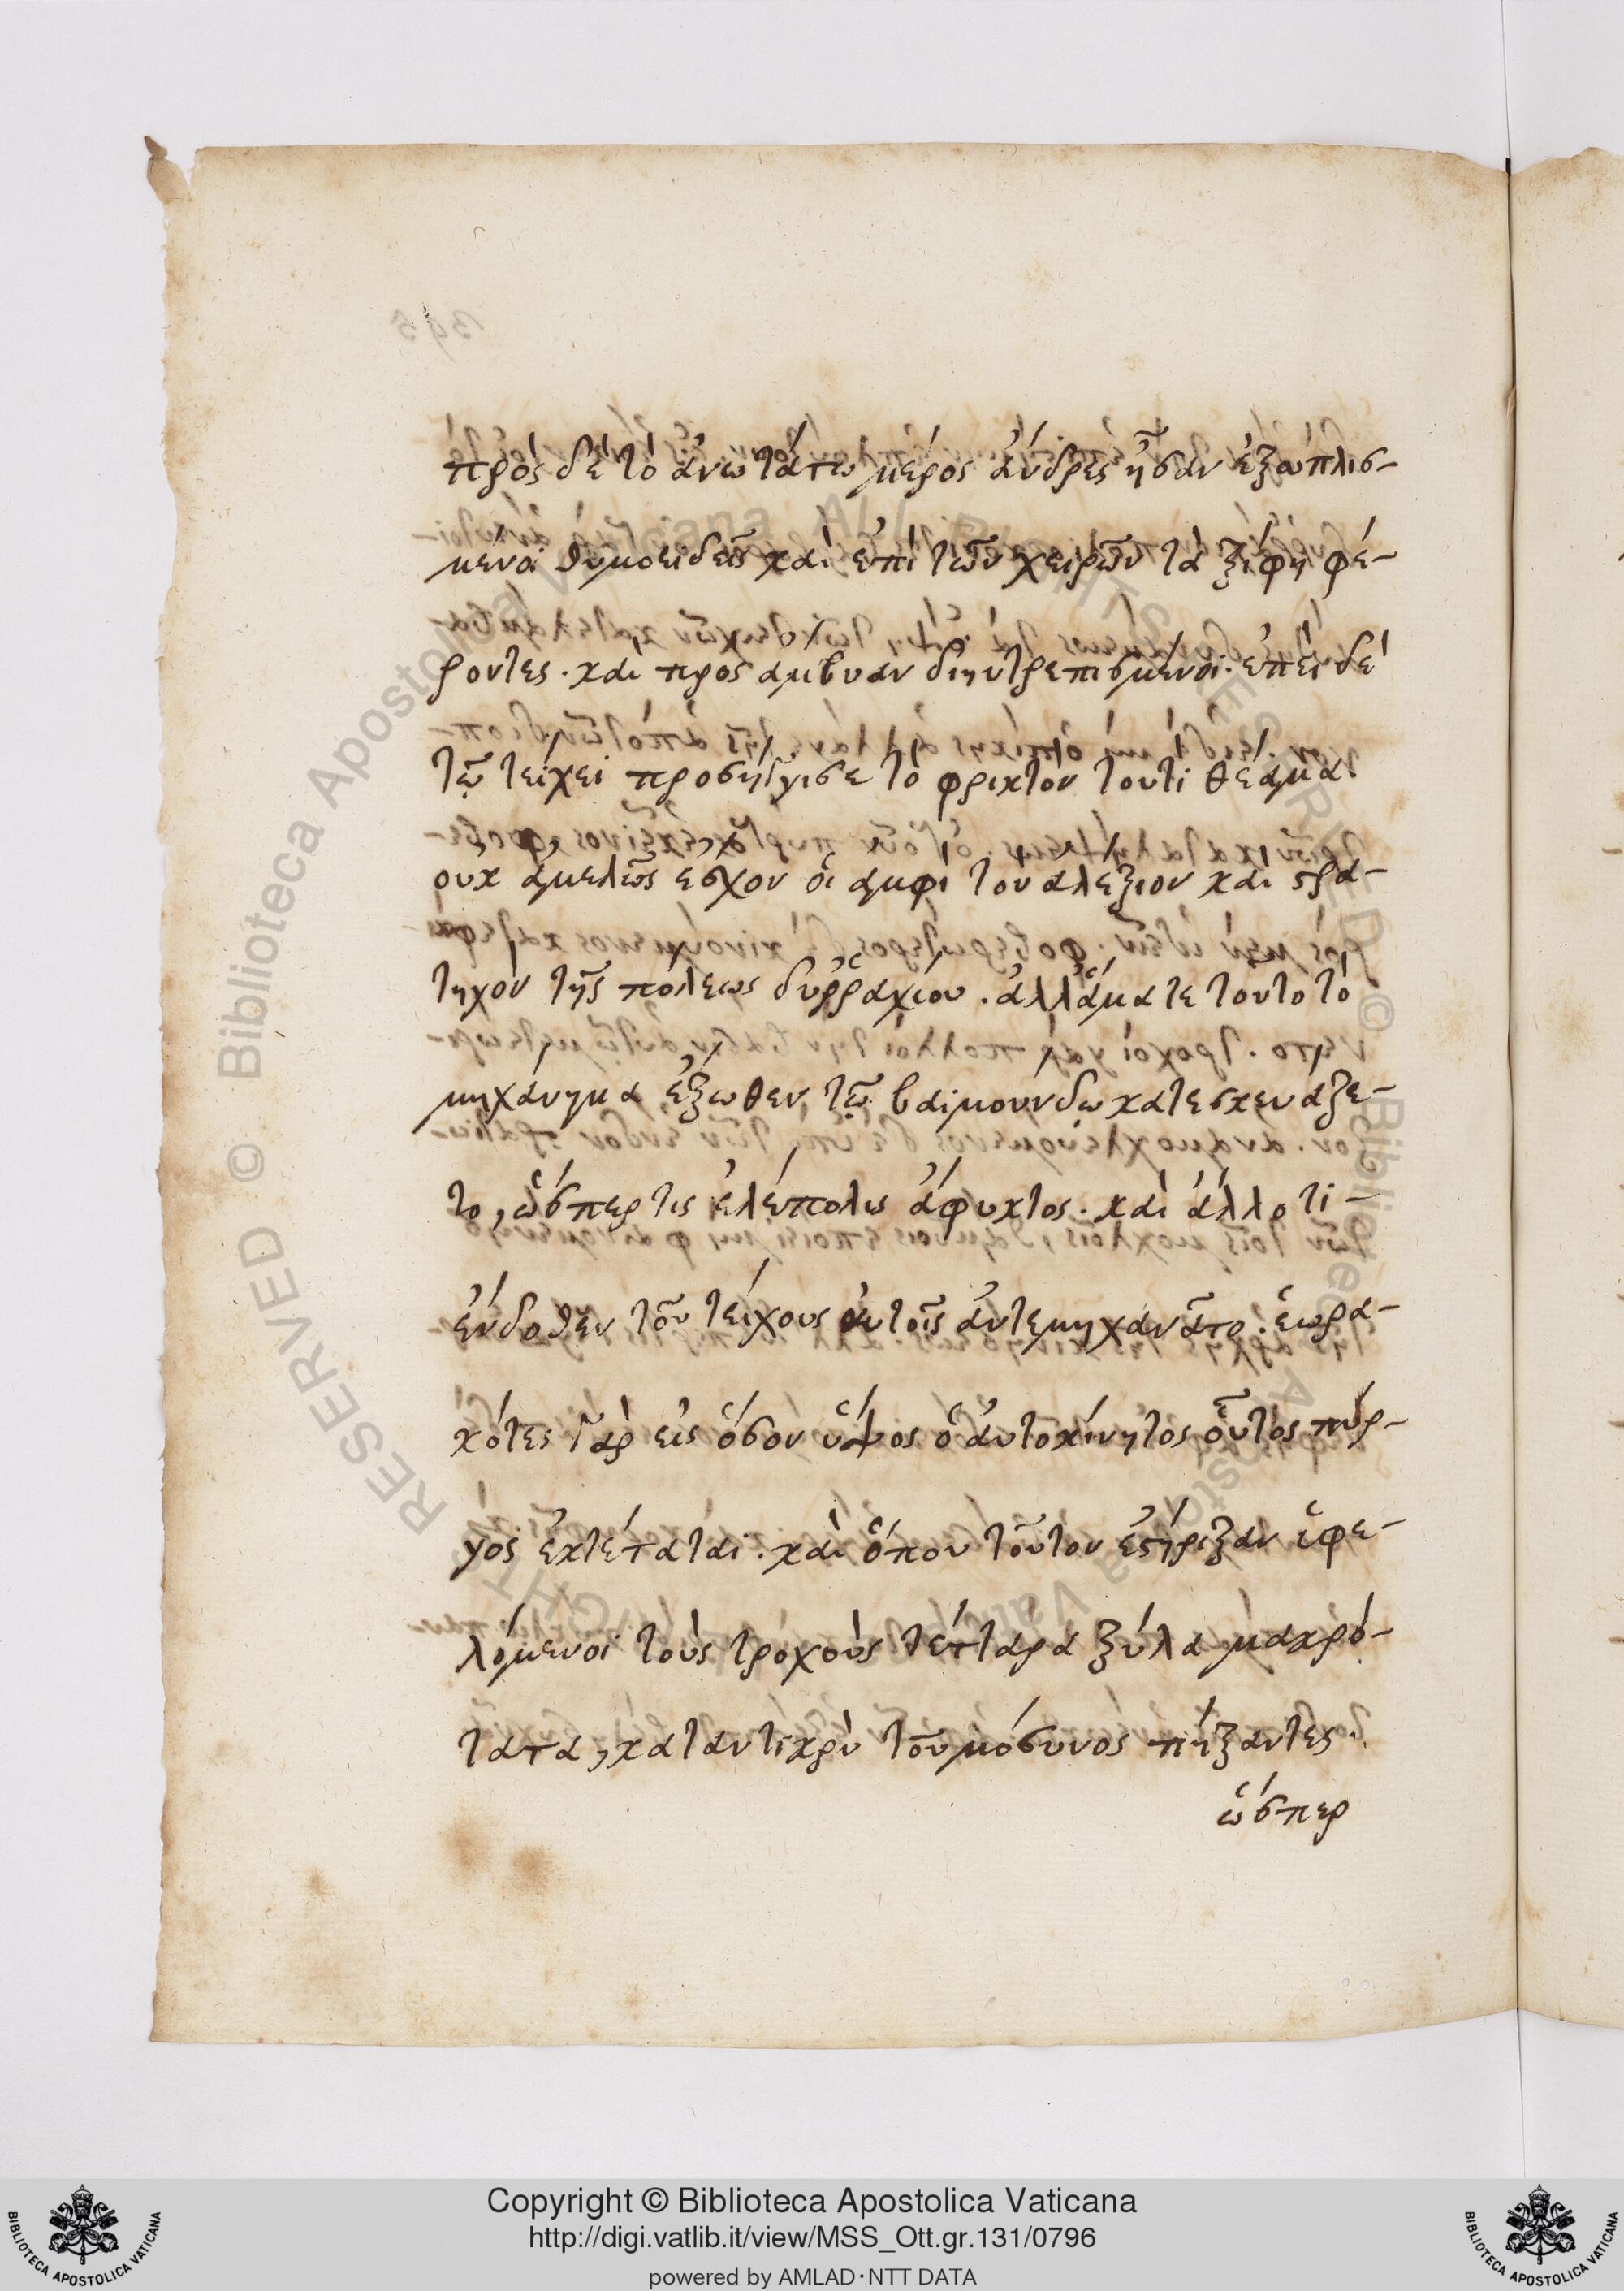 πρὸς δὲ τὸ ἀνωτάτω μέρος ἄνδρες ἦσαν ἐξωπλισ-
μένοι θυμοειδεῖς καὶ ἐπὶ τῶν χειρῶν τὰ ξίφη φέ-
ροντες. καὶ προς αμϐυαν διηυτρεπισμένοι. ἐπεὶ δὲ
τῷ τείχει προσήγγισε τὸ φρικτὸν τουτὶ θέαμα
οὐκ ἀμελῶς εσχον οἱ ἀμφὶ τὸν ἀλέξιον καὶ στρα-
τηχὸν τῆς πόλεως δυῤῥαχίου. ἀλλἅμα τε τοῦτο τὸ
μηχάνημα ἔξωθεν τῷ βαϊμούνδω κατεσκευάζε-
το, ὥσπερ τις ἑλέπολις ἄφυκτος. καὶ ἄλλο τι-
ἔνδοθεν τοῦ τείχους αὐτοῖς ἀντεμηχανᾶτο. ἑωρα-
κότες γὰρ εἰς ὅσον ὕψος ὁ ἀυτοκίνητος οὗτος πύρ-
γος ἐκτέταται. καὶ ὅπου τοῦτον ἐστήριξαν ὑφε-
λόμενοι τοὺς τροχοὺς τέτταρα ξύλα μακρό-
τατα, καταντικρὺ τοῦ μόσυνος πήξαντες.
ὥσπερ
Copyright © Biblioteca Apostolica Vaticana
http://digi.vatlib.it/view/MSS_Ott.gr.131/0796
powered by AMLAD·NTT DATA